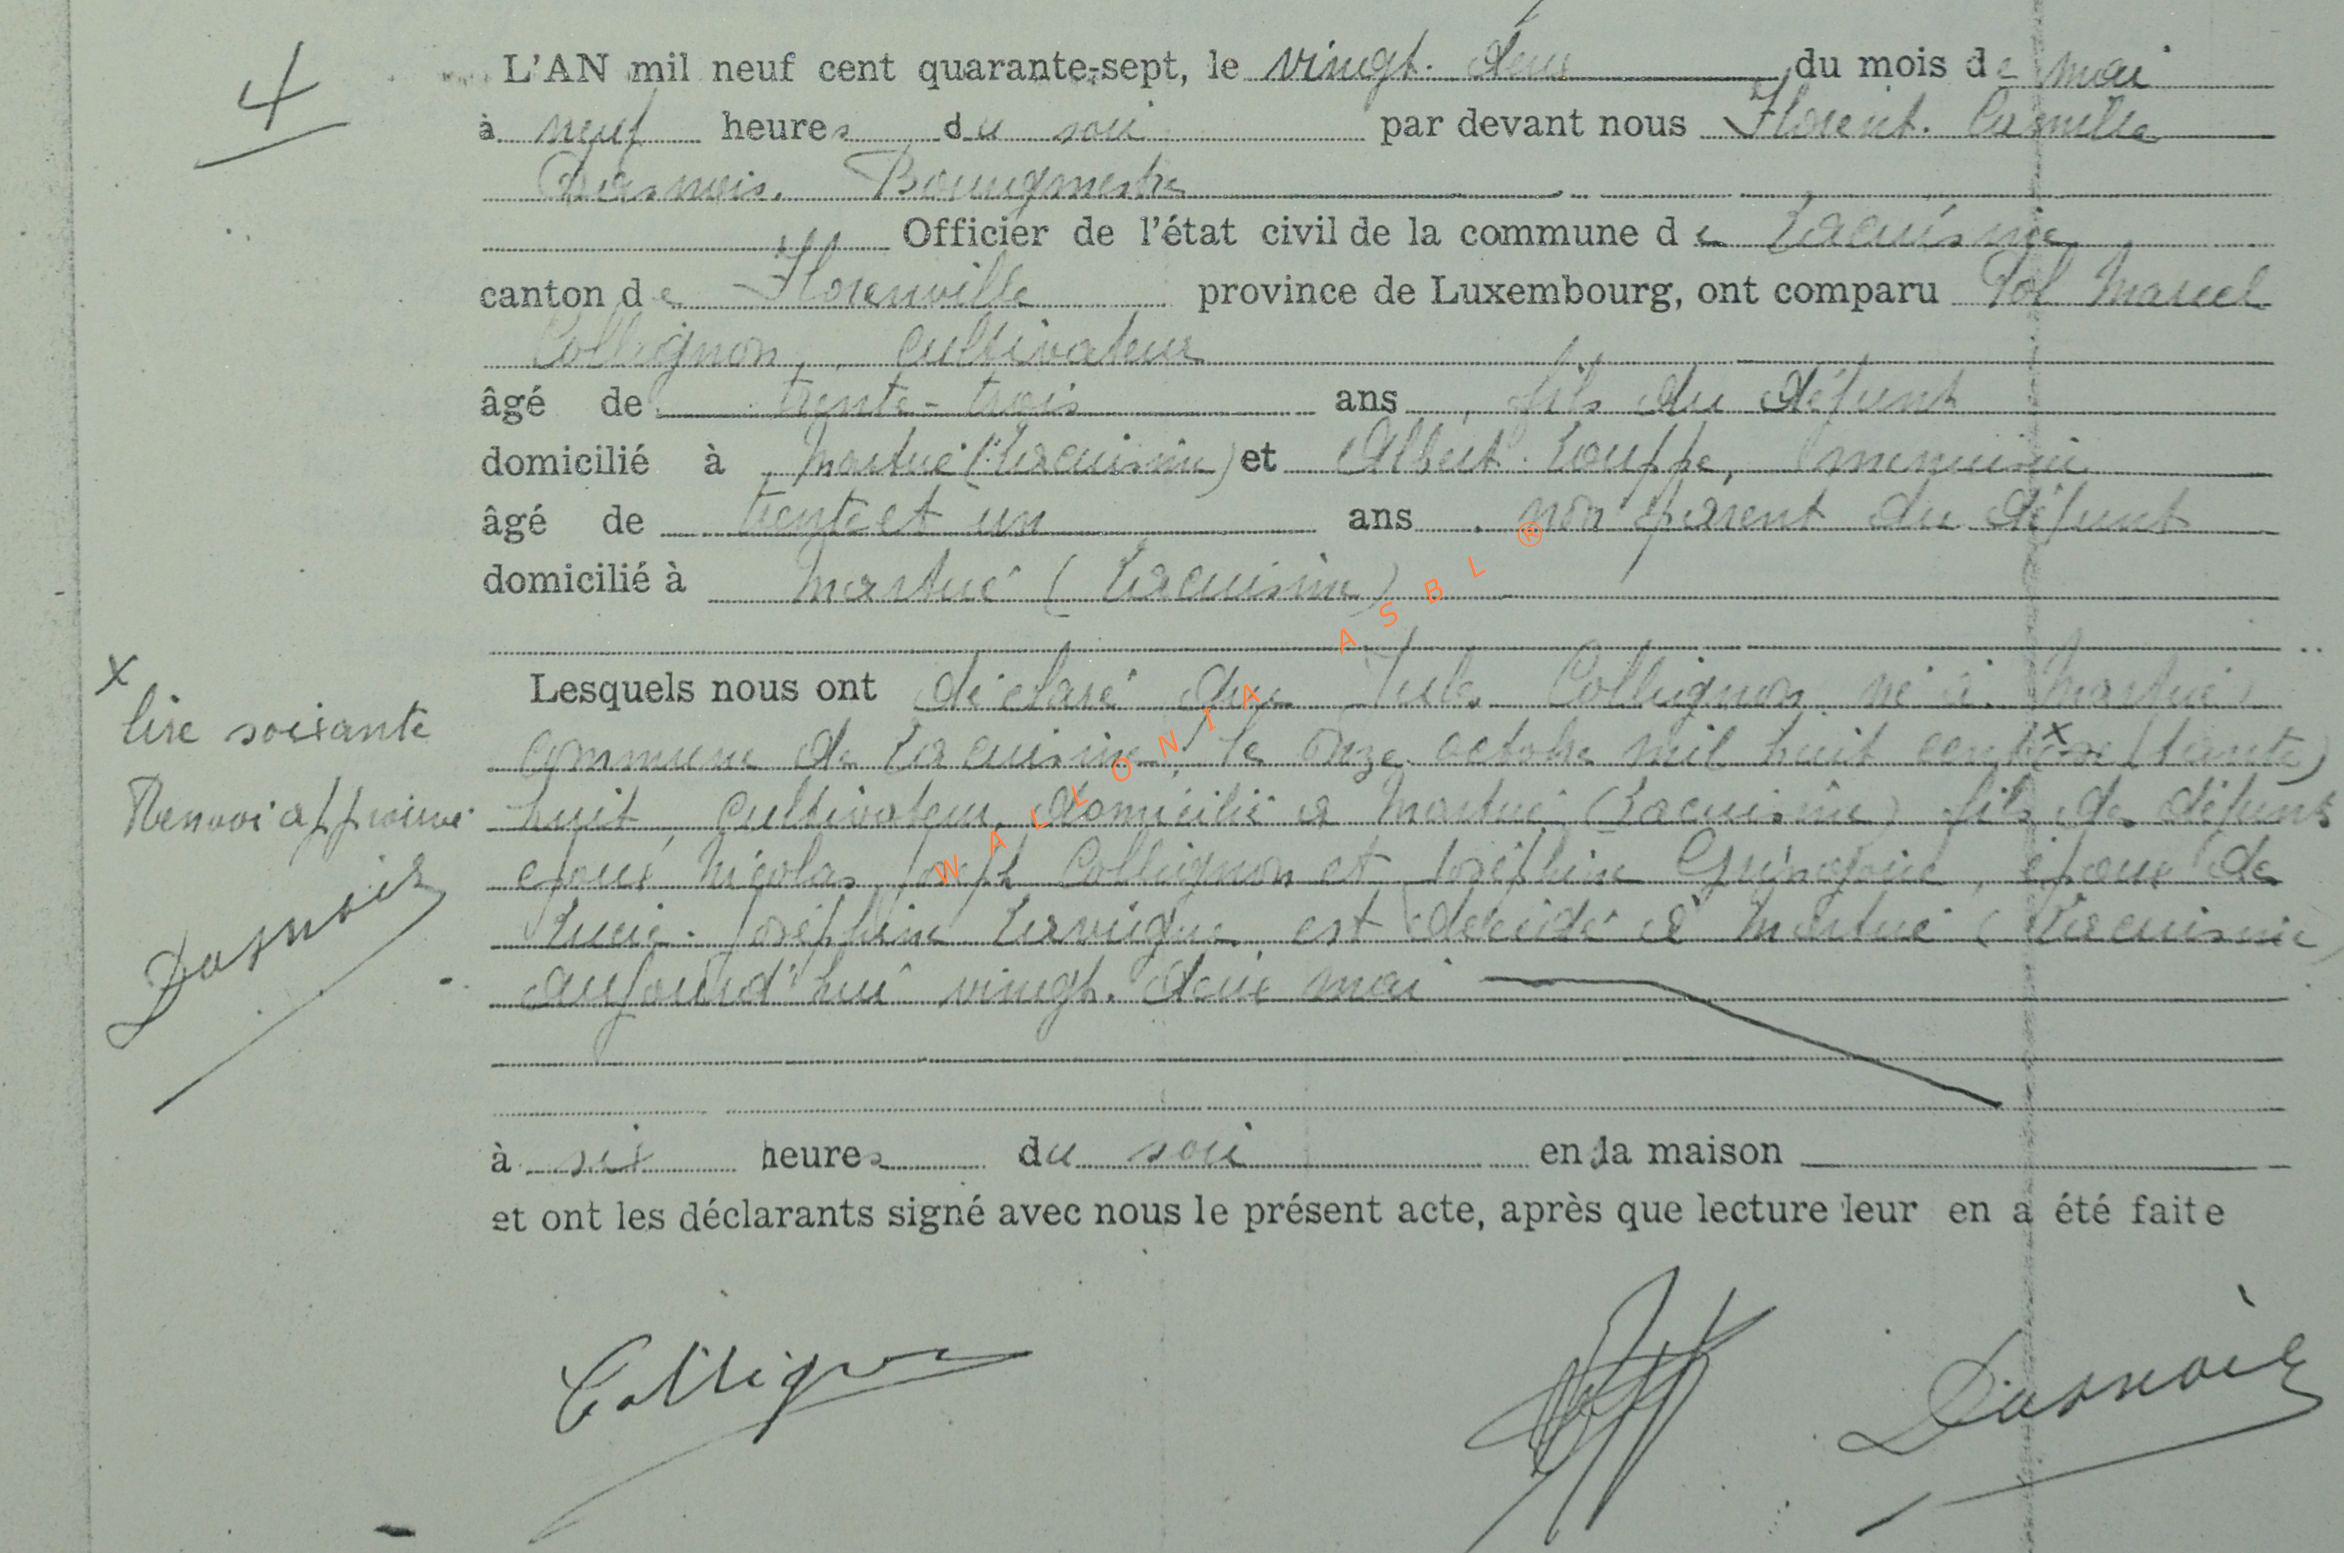 4
L'AN mil neuf cent quarante-sept, le vingt-deux du mois de mai
à neuf heures du soir par devant nous Florent-Camille
Dasnois, Bourgmestre
Officier de l'état civil de la commune de Lacuisine
canton de Florenville province de Luxembourg, ont comparu Pol Marcel
Collignon, cultivateur
âgé de trente-trois ans, fils du défunt
domicilié à Martué (Lacuisine) et Albert Louppe, menuisier
âgé de trente et un ans, non parent du défunt
domicilié à Martué (Lacuisine)
Lesquels nous ont déclaré que Jules Collignon né à Martué,
commune de Lacuisine, le onze octobre mil huit cent x (tante)
huit, cultivateur, domicilié à Martué (Lacuisine) fils des défunts
époux Nicolas Joseph Collignon et Joséphine, époux de
Lucie-Joséphine est décédé à Martué (Lacuisine)
aujourd'hui vingt-deux mai
à six heures du soir en la maison
et ont les déclarants signé avec nous le présent acte, après que lecture leur en a été faite
x
lire soixante
Renvoi approuvé
Dasnois
Collignon
Dasnois
WALLONIA ASBL ®